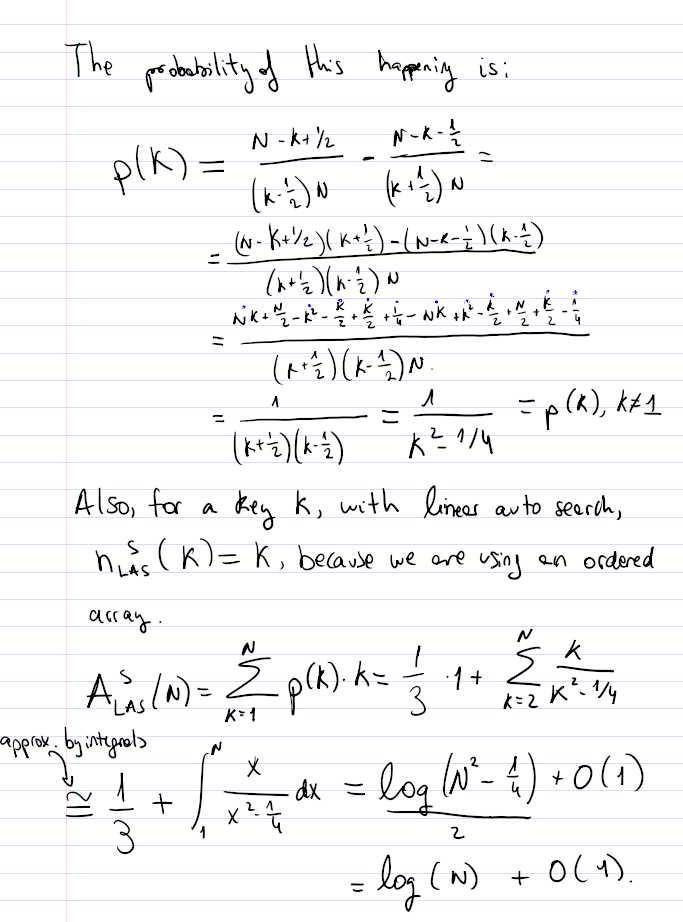 The probability of this happening is:
p(K) = (N-K+1/2)/((K-1/2)N) - (N-K-1/2)/((K+1/2)N) =
= ((N-K+1/2)(K+1/2)-(N-K-1/2)(K-1/2))/((K+1/2)(K-1/2)N)
= (NK+N/2-K²-K/2+K/2+1/4-NK+K²-K/2+N/2+K/2-1/4)/((K+1/2)(K-1/2)N).
= 1/((K+1/2)(K-1/2)) = 1/(K²-1/4) = p(K), K≠1
Also, for a key K, with linear auto search,
n^S_LAS(K) = K, because we are using an ordered
array.
A^S_LAS(N) = Σ_{K=1}^{N} p(K)·K = 1/3 ·1 + Σ_{K=2}^{N} K/(K²-1/4)
approx. by integrals
≅ 1/3 + ∫_1^N x/(x²-1/4) dx = log(N²-1/4)/2 + O(1)
= log(N) + O(1).